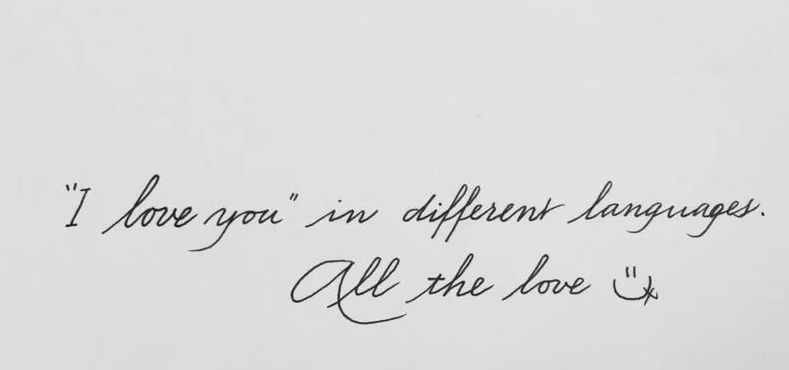 "I love you" in different languages.
All the love ツx